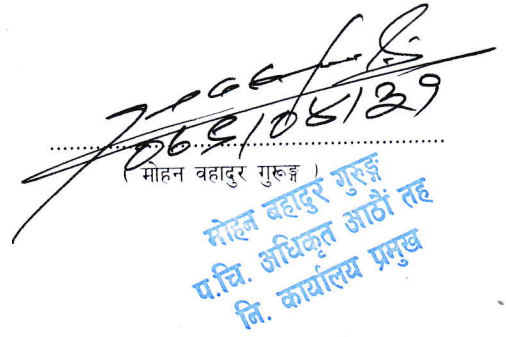 ०६९/०४/३१
( मोहन वहादुर गुरूङ्ग )
मोहन बहादुर गुरुङ्ग
प.चि. अधिकृत आठौं तह
नि. कार्यालय प्रमुख